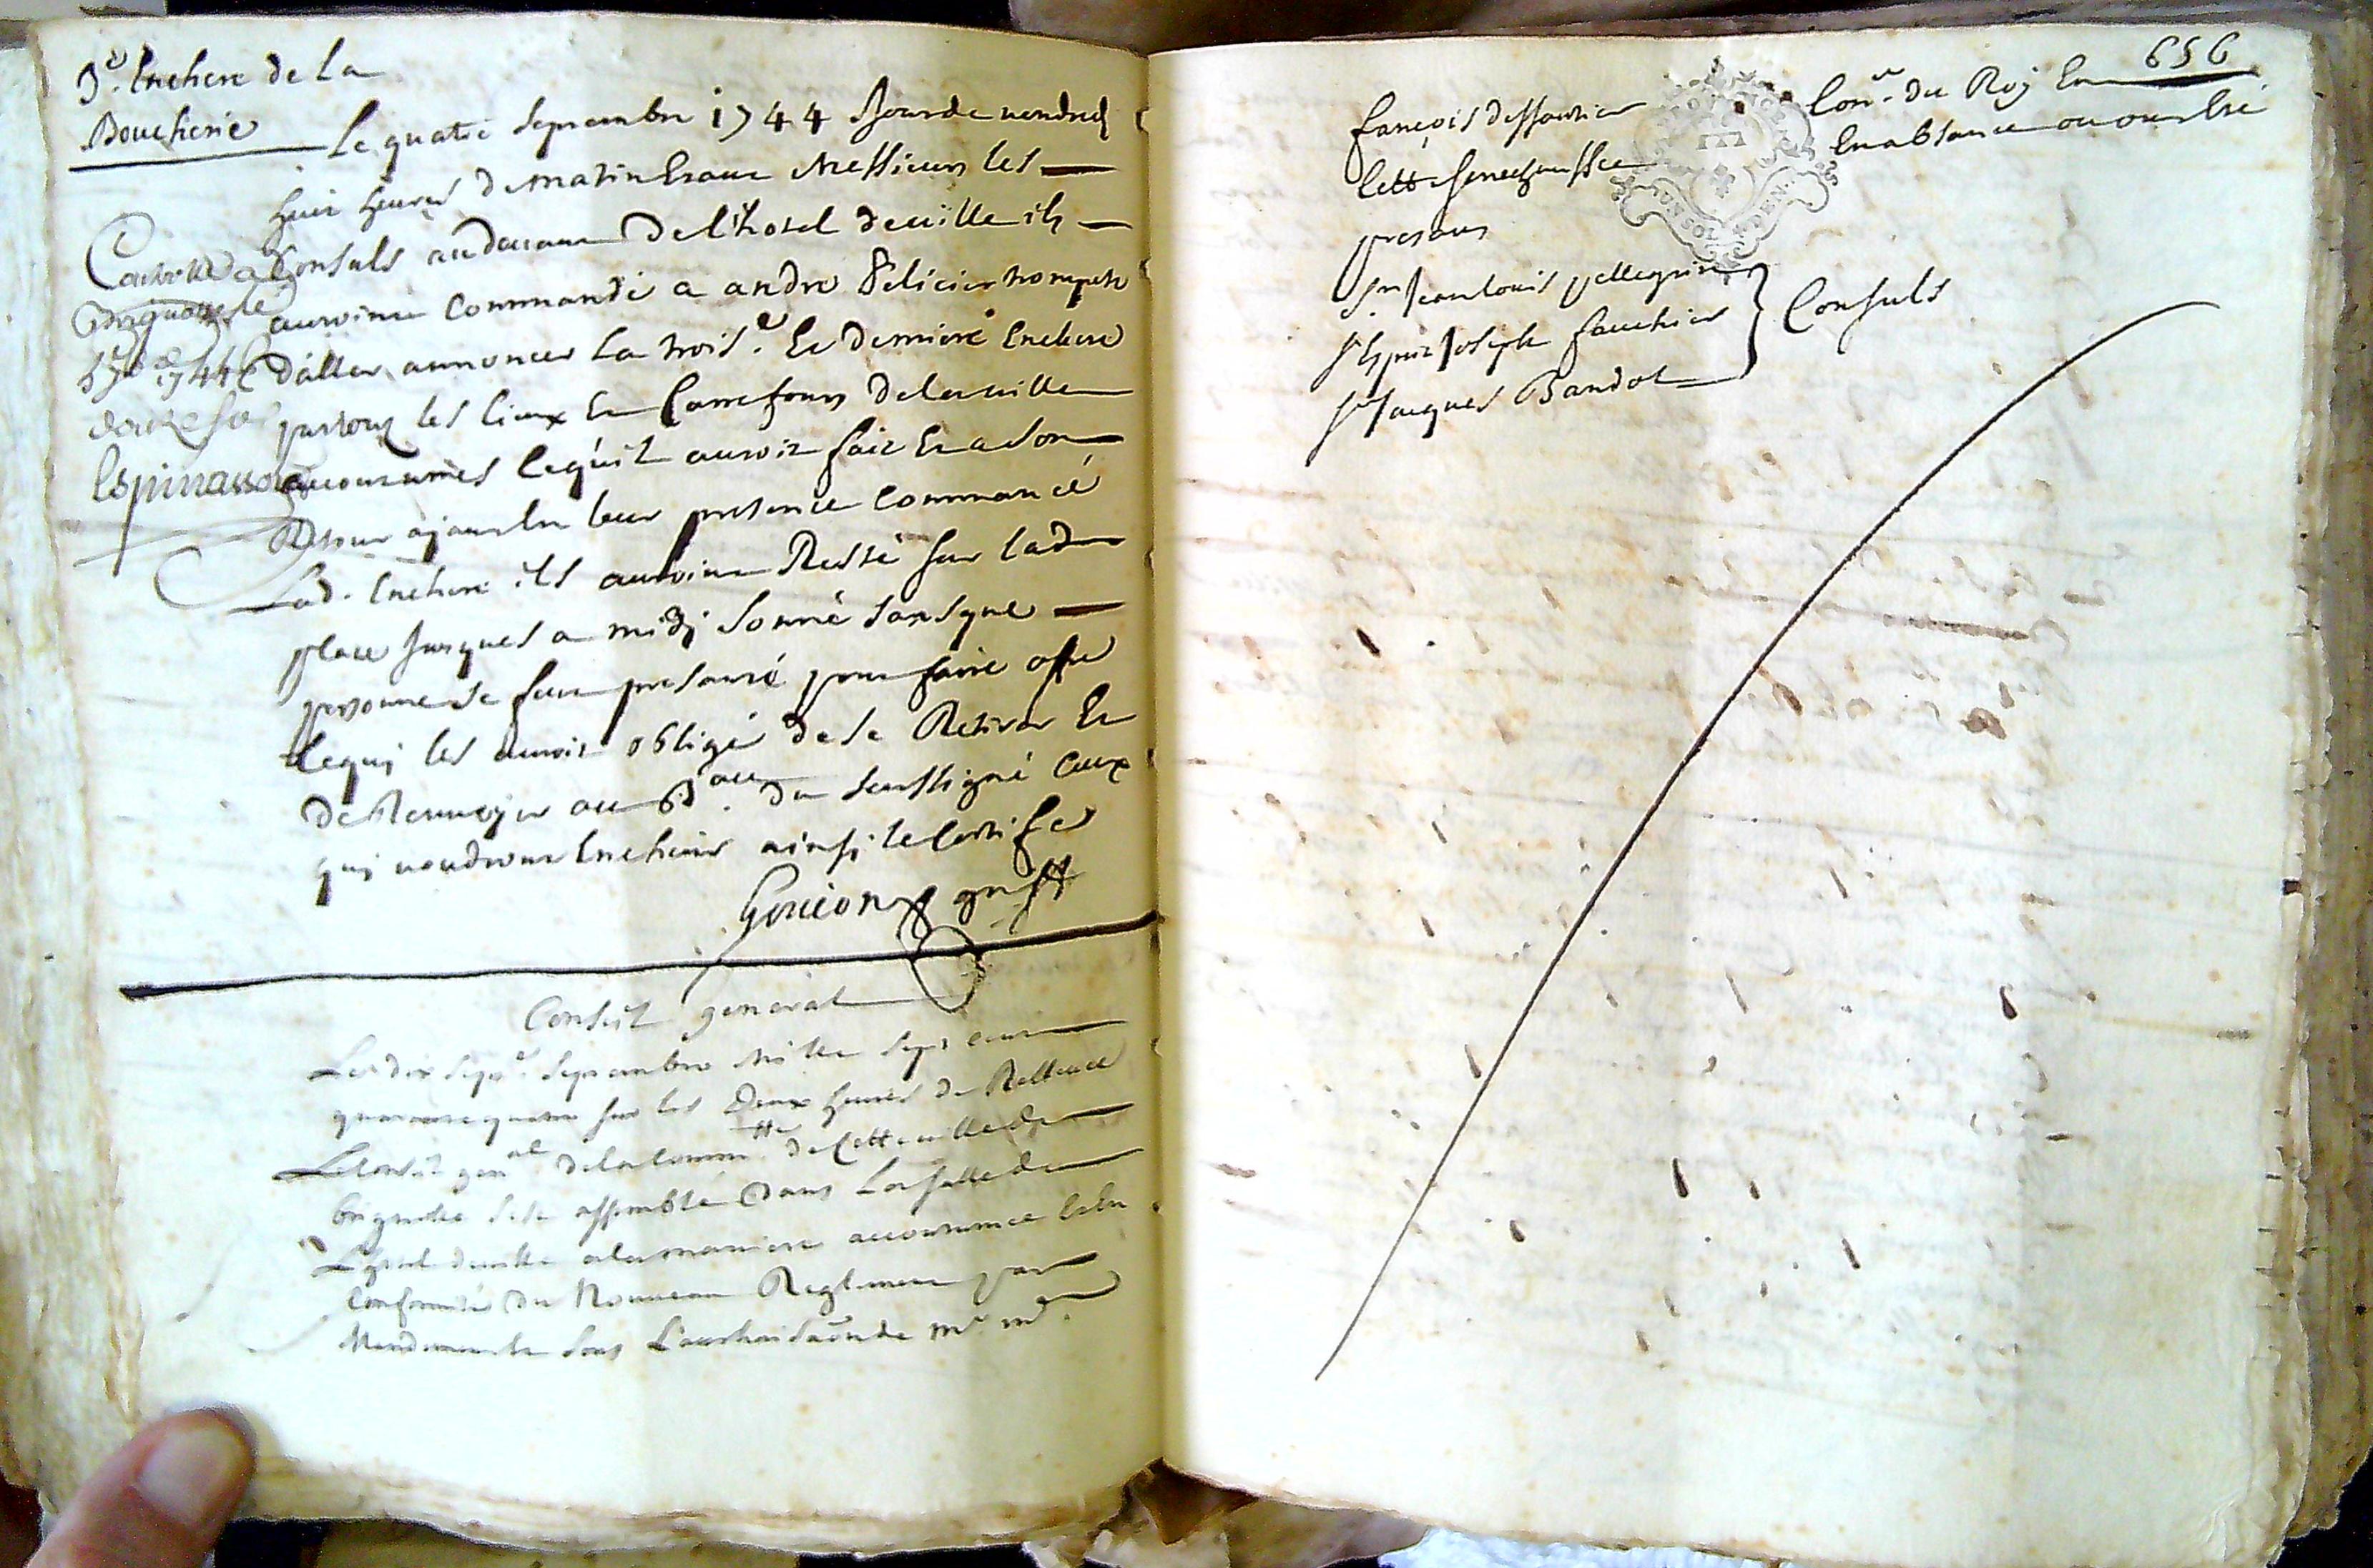 3.e Enchere de la
Boucherie
Le quatre Septembre 1744 Jour de vendredj
huit heures de matin Etant Messieurs les
Consuls audevant de l'hotel de ville ils
auroint Commandé a andre Felicier trompete
d'aller annoncer La trois.e Et derniere Enchere
partous les lieux Et Carrefours de la ville
accoutumés Cequ'il auroit fait Et a son
Retour ajant En leur presence Commancé
Lad. Enchere ils auroint Resté sur lad
place Jusques a midj sonné sans que
personne se fut presanté pour faire offre
Cequj les auroit obligé de se Retirer Et
de Renvojer au du soussigné Ceux
quj voudront Encherir ainsj le Certifie
Goujon greff
Controllé a
Brignolle le
1744
douze sols
Espinasson
Conseil general
Le dix sept.e Septembre Mille sept cent
quarante quatre sur les Deux heures de Rellevée
Le Conseil gen.al de la Commu.tte de Cette ville de
brignolle s'est assemblé dans La salle de
L'hotel de ville a la maniere accoutumée Et En
Conformité du Nouveau Reglement par
Mandement Et sous L'authorisaon de m.e m.e
656
françois dessautier Con.er du Roy En
Cette Senechaussée En absance ou
presans
S.r Jean louis pellegrin
S.r Esprit Joseph fauchier
S.r Jacques Bandol
Consuls